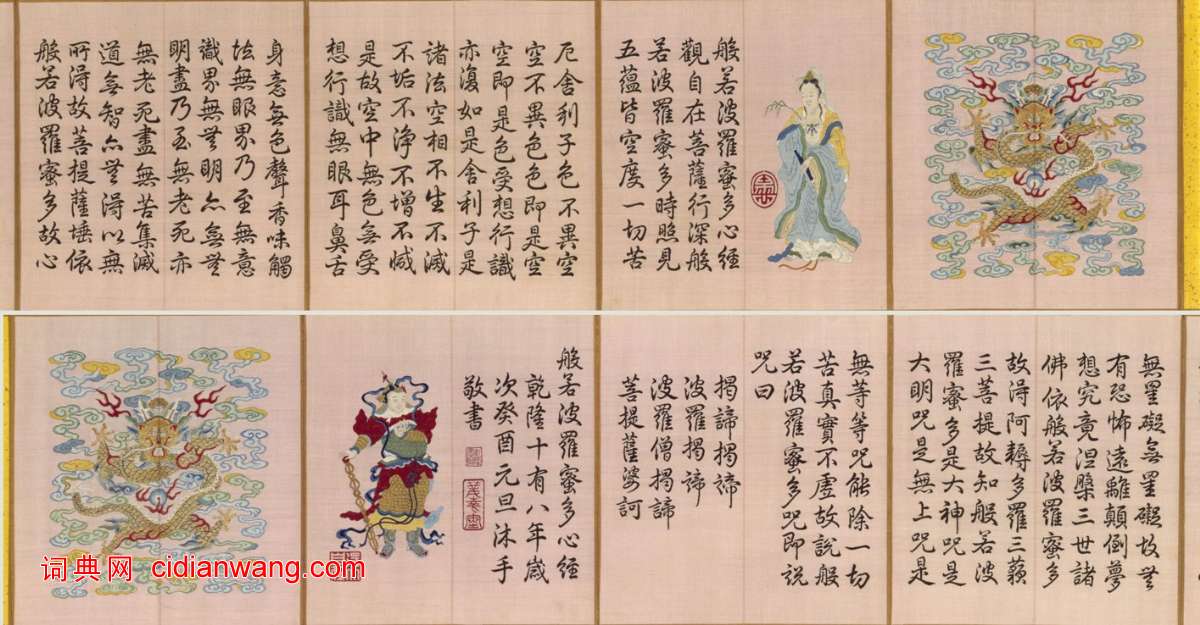 般若波羅蜜多心經
觀自在菩薩行深般
若波羅蜜多時照見
五蘊皆空度一切苦
厄舍利子色不異空
空不異色色即是空
空即是色受想行識
亦復如是舍利子是
諸法空相不生不滅
不垢不淨不增不減
是故空中無色無受
想行識無眼耳鼻舌
身意無色聲香味觸
法無眼界乃至無意
識界無無明亦無無
明盡乃至無老死亦
無老死盡無苦集滅
道無智亦無得以無
所得故菩提薩埵依
般若波羅蜜多故心
無罣礙無罣礙故無
有恐怖遠離顛倒夢
想究竟涅槃三世諸
佛依般若波羅蜜多
故得阿耨多羅三藐
三菩提故知般若波
羅蜜多是大神咒是
大明咒是無上咒是
無等等咒能除一切
苦真實不虛故說般
若波羅蜜多咒即說
咒曰
揭諦揭諦
波羅揭諦
波羅僧揭諦
菩提薩婆訶
般若波羅蜜多心經
乾隆十有八年歲
次癸酉元旦沐手
敬書
词典网 cidianwang.com